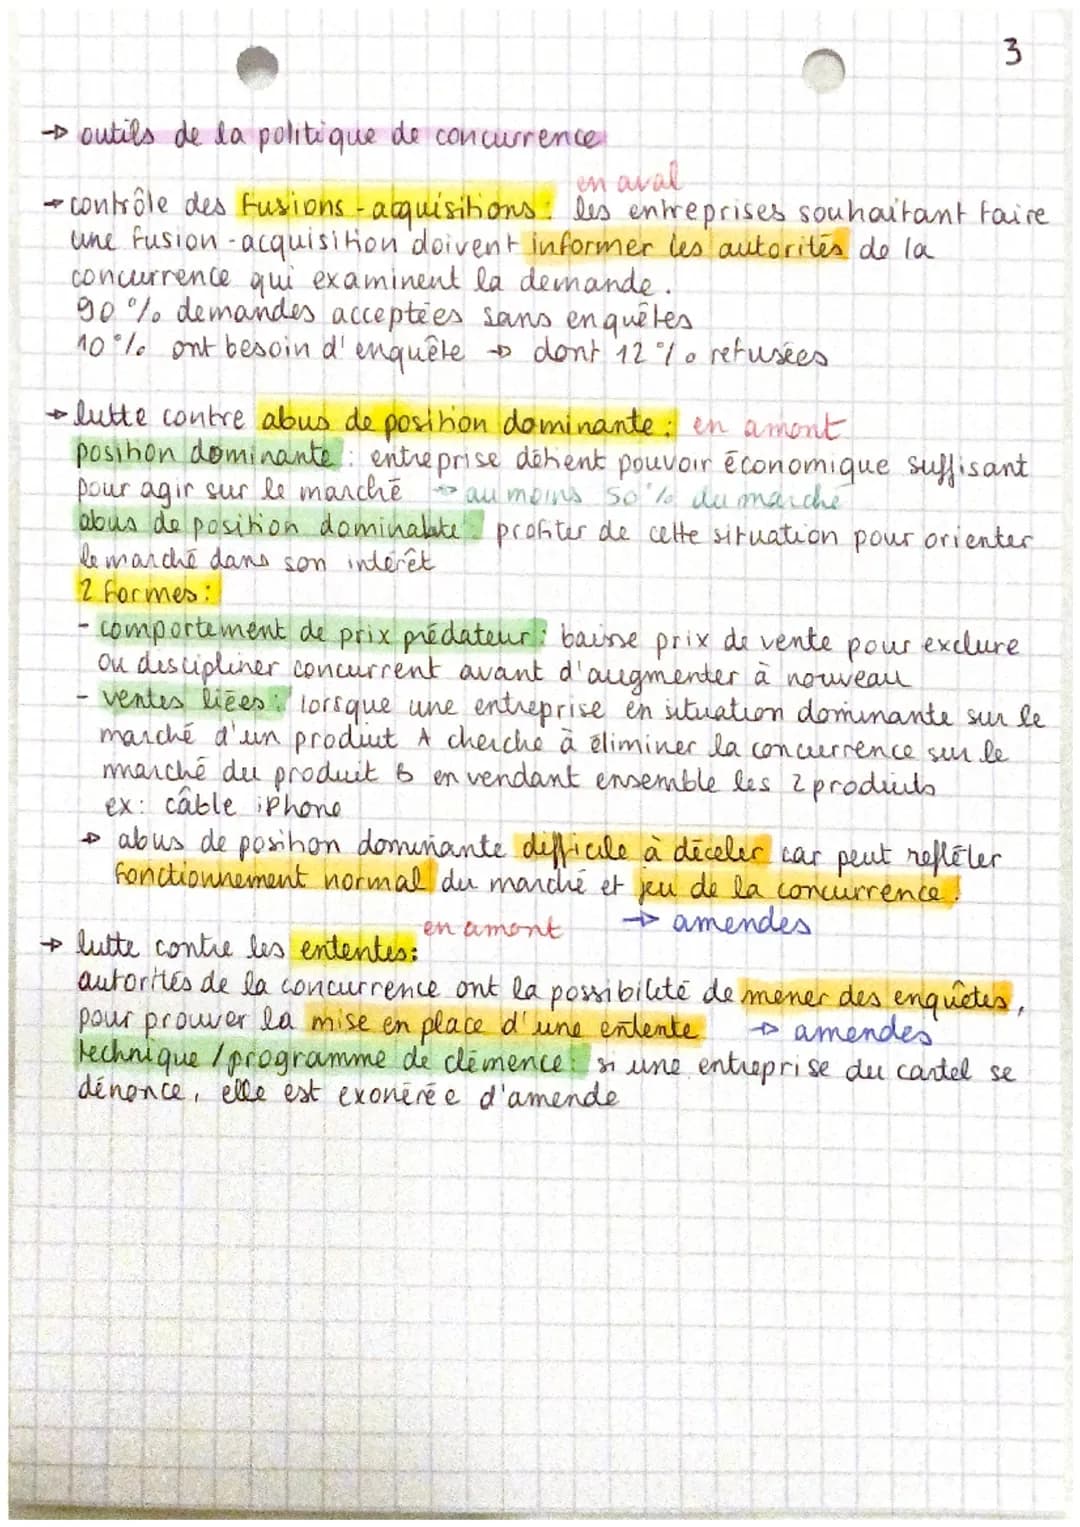 3
→ outils de la politique de concurrence
en aval
→ contrôle des fusions-acquisitions : les entreprises souhaitant faire
une fusion-acquisition doivent informer les autorités de la
concurrence qui examinent la demande.
90 % demandes acceptées sans enquêtes
10 % ont besoin d'enquête → dont 12 % refusées
→ lutte contre abus de position dominante : en amont
position dominante : entreprise détient pouvoir économique suffisant
pour agir sur le marché → au moins 50 % du marché
abus de position dominante : profiter de cette situation pour orienter
le marché dans son intérêt
2 formes :
- comportement de prix prédateur : baisse prix de vente pour exclure
ou discipliner concurrent avant d'augmenter à nouveau
- ventes liées : lorsque une entreprise en situation dominante sur le
marché d'un produit A cherche à éliminer la concurrence sur le
marché du produit B en vendant ensemble les 2 produits
ex : câble iPhone
→ abus de position dominante difficile à déceler car peut refléter
fonctionnement normal du marché et jeu de la concurrence !
→ amendes
en amont
→ lutte contre les ententes :
autorités de la concurrence ont la possibilité de mener des enquêtes,
pour prouver la mise en place d'une entente → amendes
technique / programme de clémence : si une entreprise du cartel se
dénonce, elle est exonérée d'amende